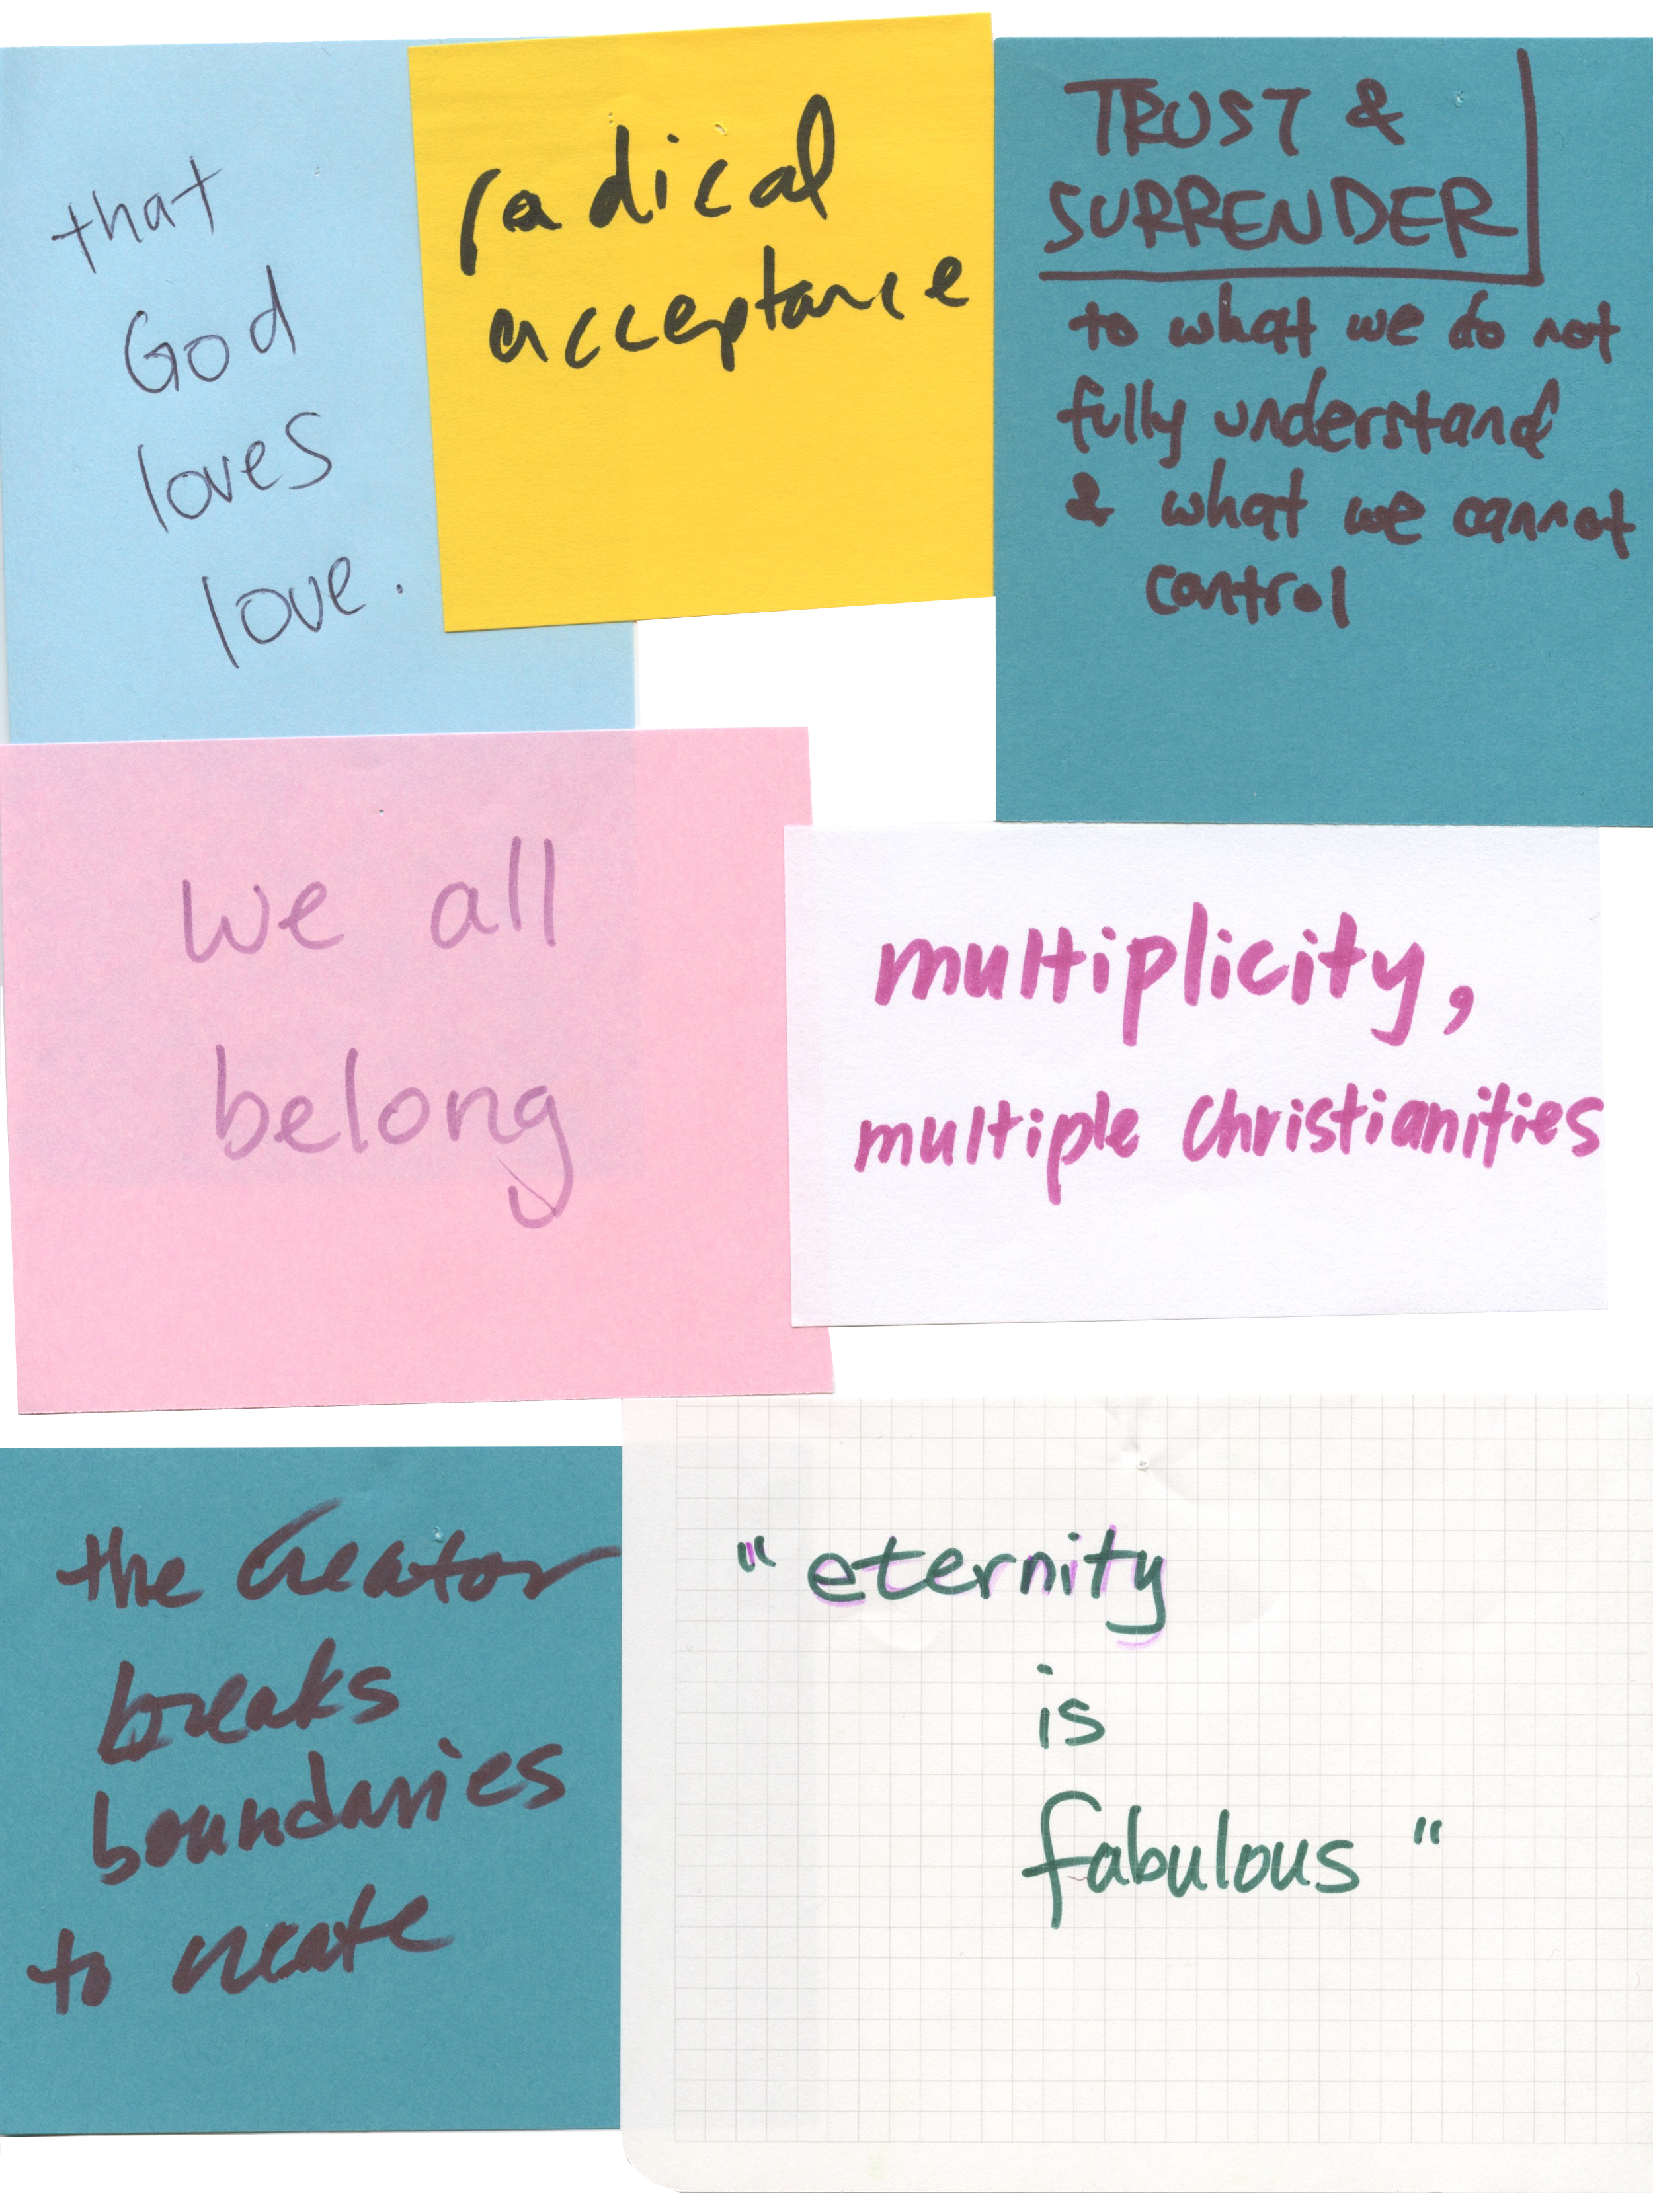 that
God
loves
love.
radical
acceptance
TRUST &
SURRENDER
to what we do not
fully understand
& what we cannot
control
we all
belong
multiplicity,
multiple Christianities
the Creator
breaks
boundaries
to create
"eternity
is
fabulous"